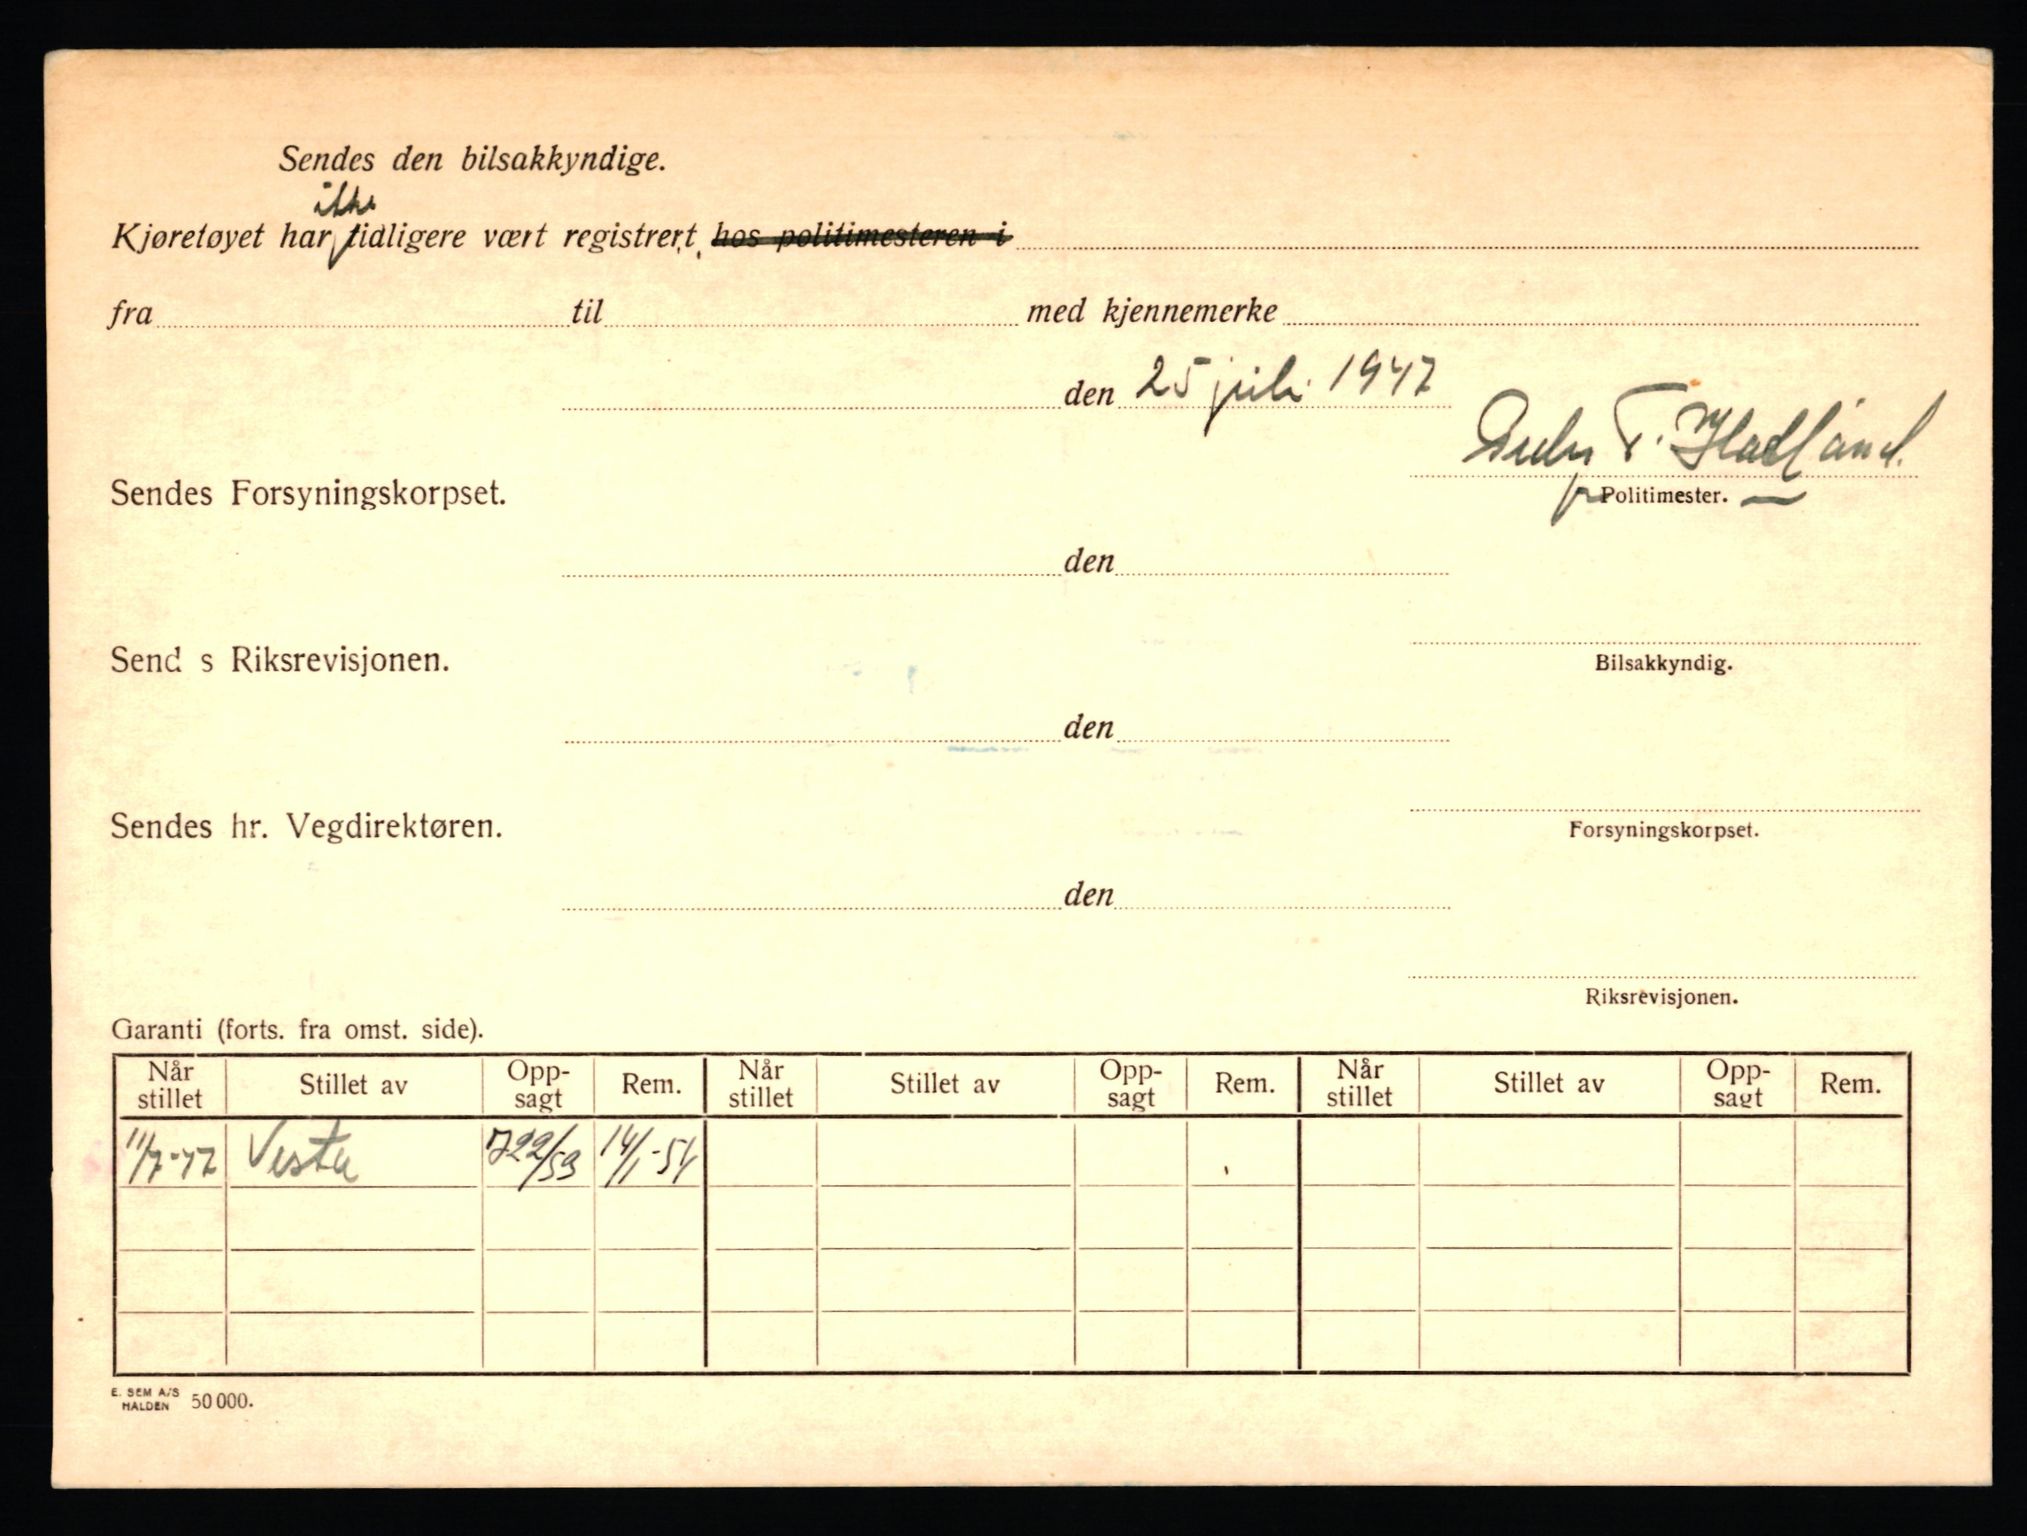 Sendes den bilsakkyndige.
ikke
Kjøretøyet har tidligere vært registrert, hos politimesteren i
fra til med kjennemerke
den 25 juli 1947
Peder T. Hadland.
Sendes Forsyningskorpset.
Politimester.
den
Send s Riksrevisjonen.
Bilsakkyndig.
den
Sendes hr. Vegdirektøren.
Forsyningskorpset.
den
Riksrevisjonen.
Garanti (forts. fra omst. side).
Når stillet Stillet av Opp- sagt Rem. Når stillet Stillet av Opp- sagt Rem. Når stillet Stillet av Opp- sagt Rem.
11/7-47 Vesta 722/53 14/1-54
E. SEM A/S
HALDEN 50 000.